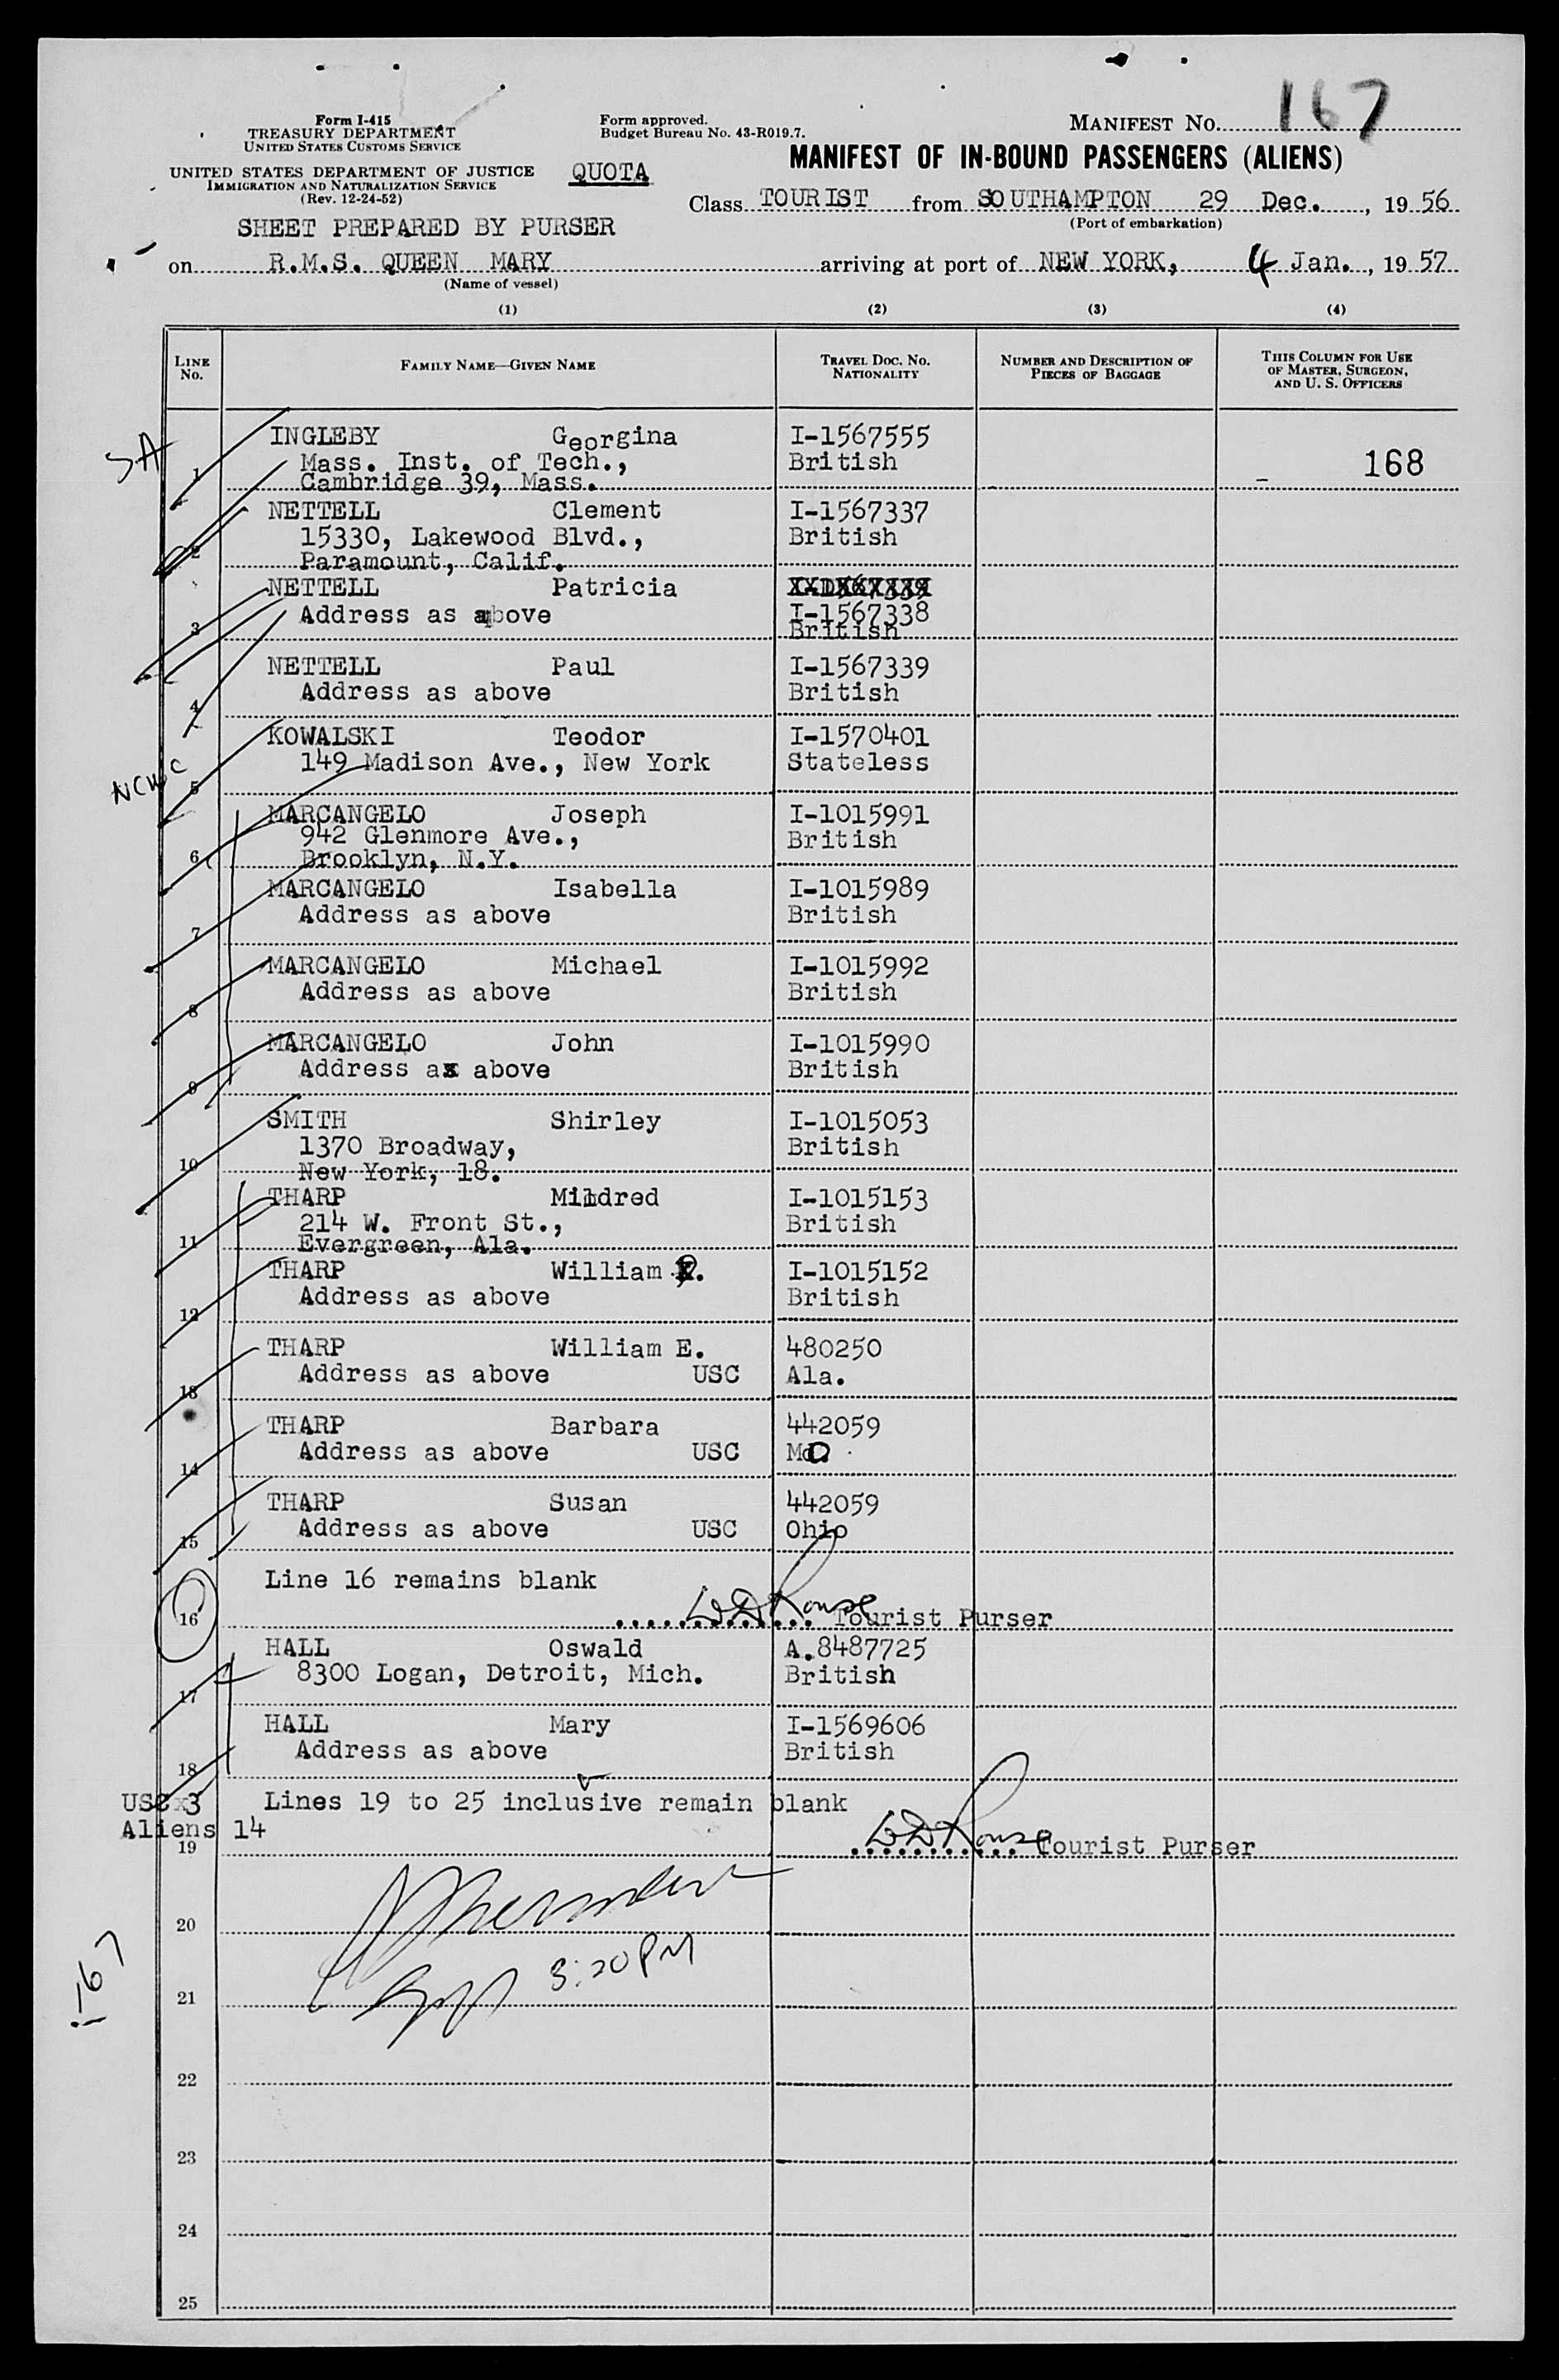 167
Form I-415
TREASURY DEPARTMENT
UNITED STATES CUSTOMS SERVICE
Form approved.
Budget Bureau No. 43-R019.7.
MANIFEST NO.
MANIFEST OF IN-BOUND PASSENGERS (ALIENS)
UNITED STATES DEPARTMENT OF JUSTICE
IMMIGRATION AND NATURALIZATION SERVICE
(Rev. 12-24-52)
QUOTA
Class TOURIST from SOUTHAMPTON 29 Dec., 19 56
(Port of embarkation)
SHEET PREPARED BY PURSER
on R.M.S. QUEEN MARY arriving at port of NEW YORK, 4 Jan., 19 57
(Name of vessel)
(1) (2) (3) (4)
LINE No. FAMILY NAME—GIVEN NAME TRAVEL DOC. NO. NATIONALITY NUMBER AND DESCRIPTION OF PIECES OF BAGGAGE THIS COLUMN FOR USE OF MASTER, SURGEON, AND U. S. OFFICERS
SA
1 INGLEBY Georgina I-1567555
Mass. Inst. of Tech., British 168
Cambridge 39, Mass.
2 NETTELL Clement I-1567337
15330, Lakewood Blvd., British
Paramount, Calif.
3 NETTELL Patricia
Address as above I-1567338
British
4 NETTELL Paul I-1567339
Address as above British
NCWC
5 KOWALSKI Teodor I-1570401
149 Madison Ave., New York Stateless
6 MARCANGELO Joseph I-1015991
942 Glenmore Ave., British
Brooklyn, N.Y.
7 MARCANGELO Isabella I-1015989
Address as above British
8 MARCANGELO Michael I-1015992
Address as above British
9 MARCANGELO John I-1015990
Address as above British
10 SMITH Shirley I-1015053
1370 Broadway, British
New York, 18.
11 THARP Mildred I-1015153
214 W. Front St., British
Evergreen, Ala.
12 THARP William I-1015152
Address as above British
13 THARP William E. 480250
Address as above USC Ala.
14 THARP Barbara 442059
Address as above USC Mo.
15 THARP Susan 442059
Address as above USC Ohio
Line 16 remains blank
16 WD Rouse Tourist Purser
17 HALL Oswald A.8487725
8300 Logan, Detroit, Mich. British
18 HALL Mary I-1569606
Address as above British
USC x3 Lines 19 to 25 inclusive remain blank
Aliens 14
19 WD Rouse Tourist Purser
20
3:20 PM
21
22
23
24
25